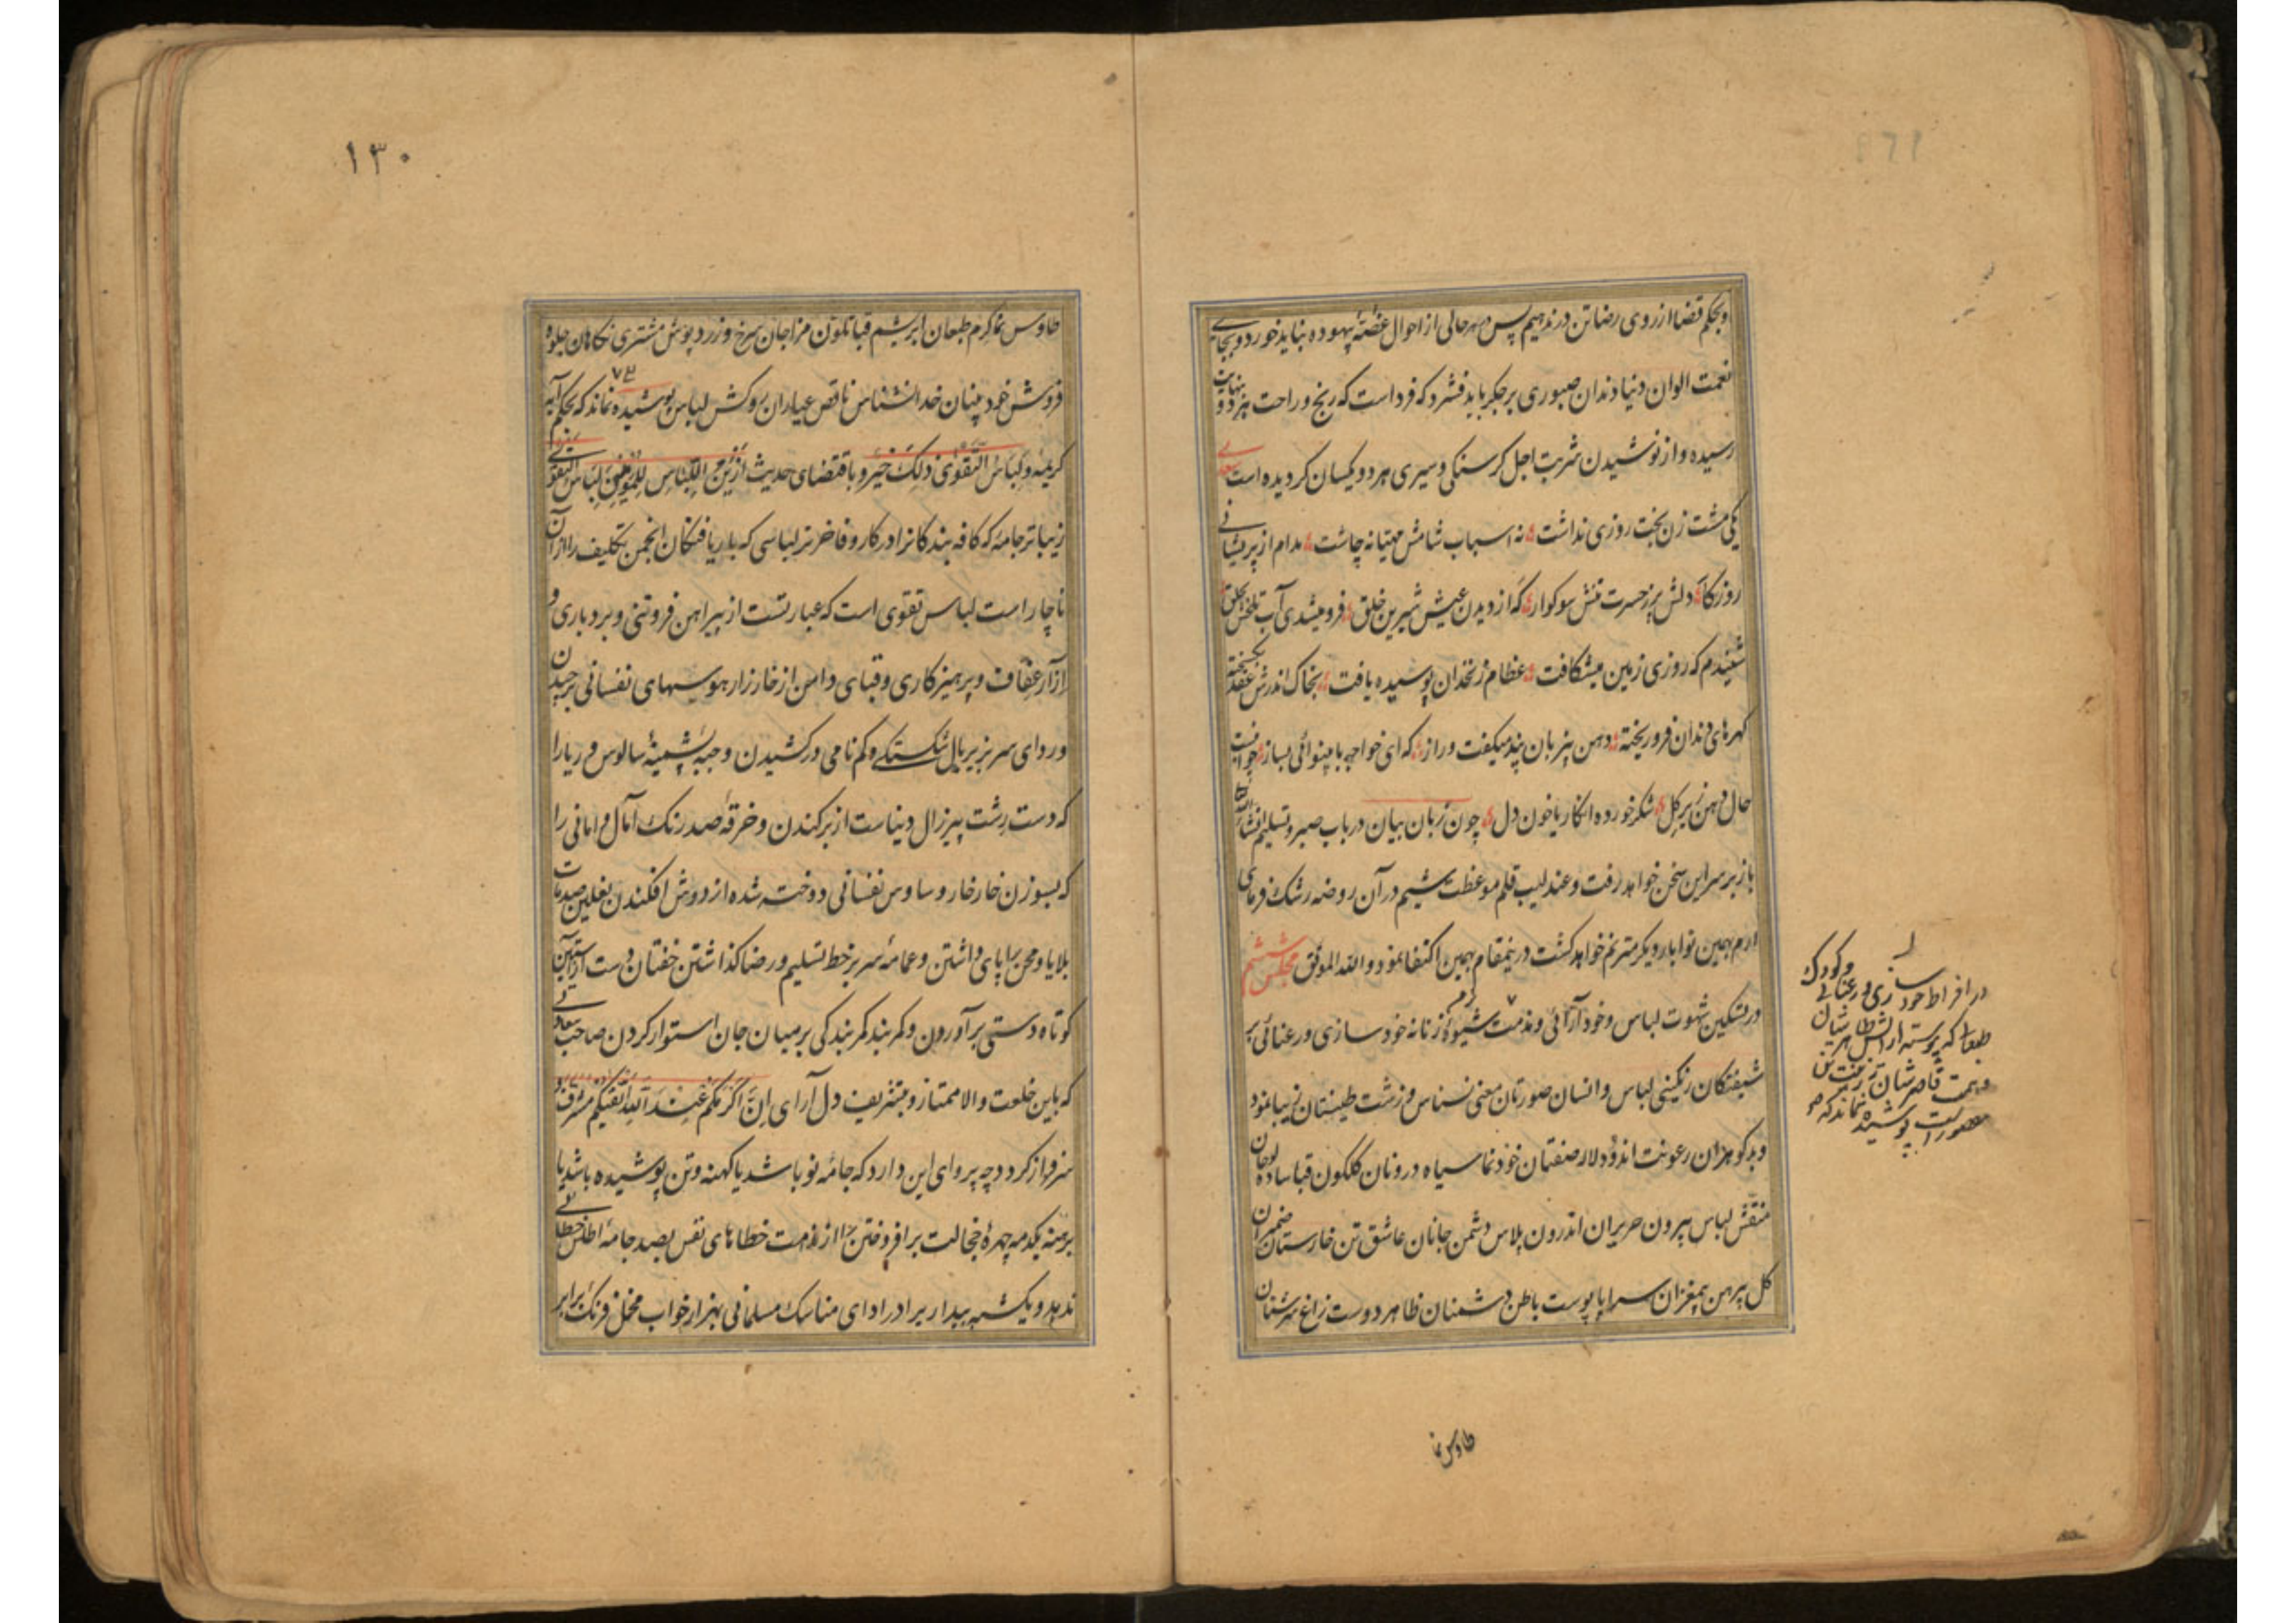 وبحکم قضا از روی رضا تن در ندهیم پس در هر حالی از احوال غصّهٔ بیهوده نباید خورد و بجای
نعمت الوان دنیا دندان صبوری بر جکر باید فشرد که فرداست که رنج و راحت هر دو بنهایت
رسیده و از نوشیدن شربت اجل کرسنکی و سیری هر دو یکسان کردیده است سعدی
یکی مشت زن بخت روزی نداشت نه اسباب شامش مهیا نه چاشت مدام از پریشانی
روزکار دلش پر ز حسرت تنش سوکوار که از دیدن عیش شیرین خلق فرو میشدی آب تلخش بحلق
شنیدم که روزی زمین میشکافت عظام زنخدان پوسیده یافت بخاک اندرش عقد بکسیخته
کهرهای دندان فرو ریخته دهن بی زبان پند میکفت و راز که ای خواجه با بینوائی بساز چو اینست
حال دهن زیر کل شکر خورده انکار یا خون دل چون زبان بیان در باب صبر و تسلیم انشاءالله
باز بر سر این سخن خواهد رفت و عندلیب قلم موعظت شیم در آن روضه رشک فرمای
ارم بهمین نوا بار دیکر مترنم خواهد کشت درینمقام بهمین اکتفا نمود والله الموفق مجلس ششم
در تسکین شهوت لباس و خودآرائی و مذمت شیوهٔ زنانه خودسازی و رعنائی بر
شیفتکان رنکینی لباس و انسان صورتان معنی نسناس و زشت طینتان زیبا نمود
و بد کوهران رعونت اندود لاله صفتان خودنما سیاه درونان کلکون قبا ساده لوحان
منقش لباس بیرون حریران اندرون پلاس دشمن جانان عاشق تن خارستان ضمیران
کل پیرهن بیمغزان سراپا پوست باطن دشمنان ظاهر دوست زاغ سرشتان
طاوس نما
در افراط خودسازی و رعنائی
۱۳۰
طاوس نما کرم طبعان ابریشم قبا تلون مزاجان سرخ و زرد پوش مشتری نکاهان جلوه
فروش خودبینان خدانشناس ناقص عیاران روکش لباس پوشیده نماند که بحکم آیه
کریمه ولباس التقوی ذلک خیر و باقتضای حدیث ازین اللباس للمؤمنین لباس التقوی
زیباتر جامه که کافه بندکانرا در کار و فاخرتر لباسی که بار یافتکان انجمن تکلیف را از آن
ناچار است لباس تقوی است که عبارتست از پیراهن فروتنی و بردباری و
ازار عفاف و پرهیزکاری و قبای دامن از خارزار هوسهای نفسانی برچیدن
و ردای سر بزیر بال شکستکی و کم نامی در کشیدن و جبهٔ پشمینهٔ سالوس و ریا را
که دست رشت پیر زال دنیاست از بر کندن و خرقهٔ صد رنک آمال و امانی را
که بسوزن خارخار وساوس نفسانی دوخته شده از دوش افکندن نعلین صدمات
بلایا و محن را پای داشتن و عمامهٔ سر بر خط تسلیم و رضا کذاشتن خفتان دست از آستین
کوتاه دستی برآوردن و کمربند کمر بندکی بر میان جان استوار کردن صاحب سعادتی
که باین خلعت والا ممتاز و بتشریف دل آرای اِنَّ اَکْرَمَکُمْ عِنْدَ اللهِ اَتْقیکُمْ مشرف و
سرفراز کردد چه پروای این دارد که جامهٔ نو باشد یا کهنه و تن پوشیده باشد یا
برهنه یکدمه چهرهٔ خجالت برافروختن را از ندامت خطاهای نفس بصد جامه اطلس خطائی
ندهد و یکشبه بیدار برادر ادای مناسک مسلمانی بهزار خواب مخمل فرنک برابر